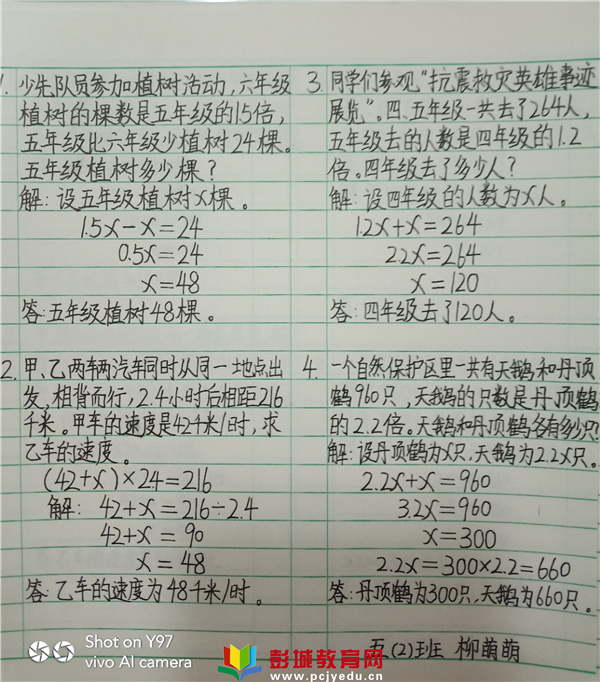 1. 少先队员参加植树活动,六年级
植树的棵数是五年级的1.5倍,
五年级比六年级少植树24棵。
五年级植树多少棵?
解:设五年级植树x棵。
1.5x-x=24
0.5x=24
x=48
答:五年级植树48棵。
2. 甲、乙两车两汽车同时从同一地点出
发,相背而行,2.4小时后相距216
千米。甲车的速度是42千米/时,求
乙车的速度。
(42+x)×2.4=216
解: 42+x=216÷2.4
42+x=90
x=48
答:乙车的速度为48千米/时。
3. 同学们参观“抗震救灾英雄事迹
展览”。四、五年级一共去了264人,
五年级去的人数是四年级的1.2
倍。四年级去了多少人?
解:设四年级的人数为x人。
1.2x+x=264
2.2x=264
x=120
答:四年级去了120人。
4. 一个自然保护区里一共有天鹅和丹顶
鹤960只,天鹅的只数是丹顶鹤
的2.2倍。天鹅和丹顶鹤各有多少只?
解:设丹顶鹤为x只,天鹅为2.2x只。
2.2x+x=960
3.2x=960
x=300
2.2x=300×2.2=660
答:丹顶鹤为300只,天鹅为660只。
五(2)班 柳萌萌
Shot on Y97
vivo AI camera
彭城教育网
www.pcjyedu.cn